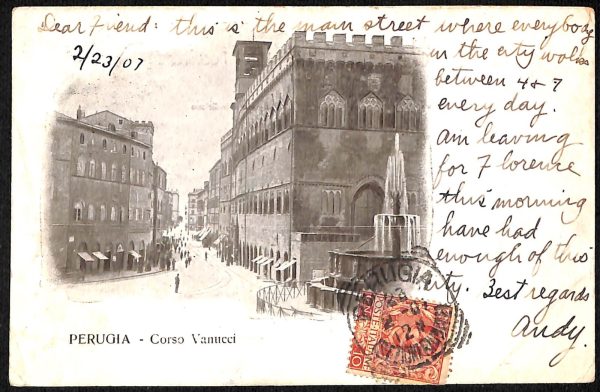 Dear Friend: this is the main street where everybody
2/23/07
in the city walks
between 4 & 7
every day.
am leaving
for Florence
this morning
have had
enough of this
city. Best regards
Andy.
PERUGIA
PERUGIA - Corso Vanucci
10